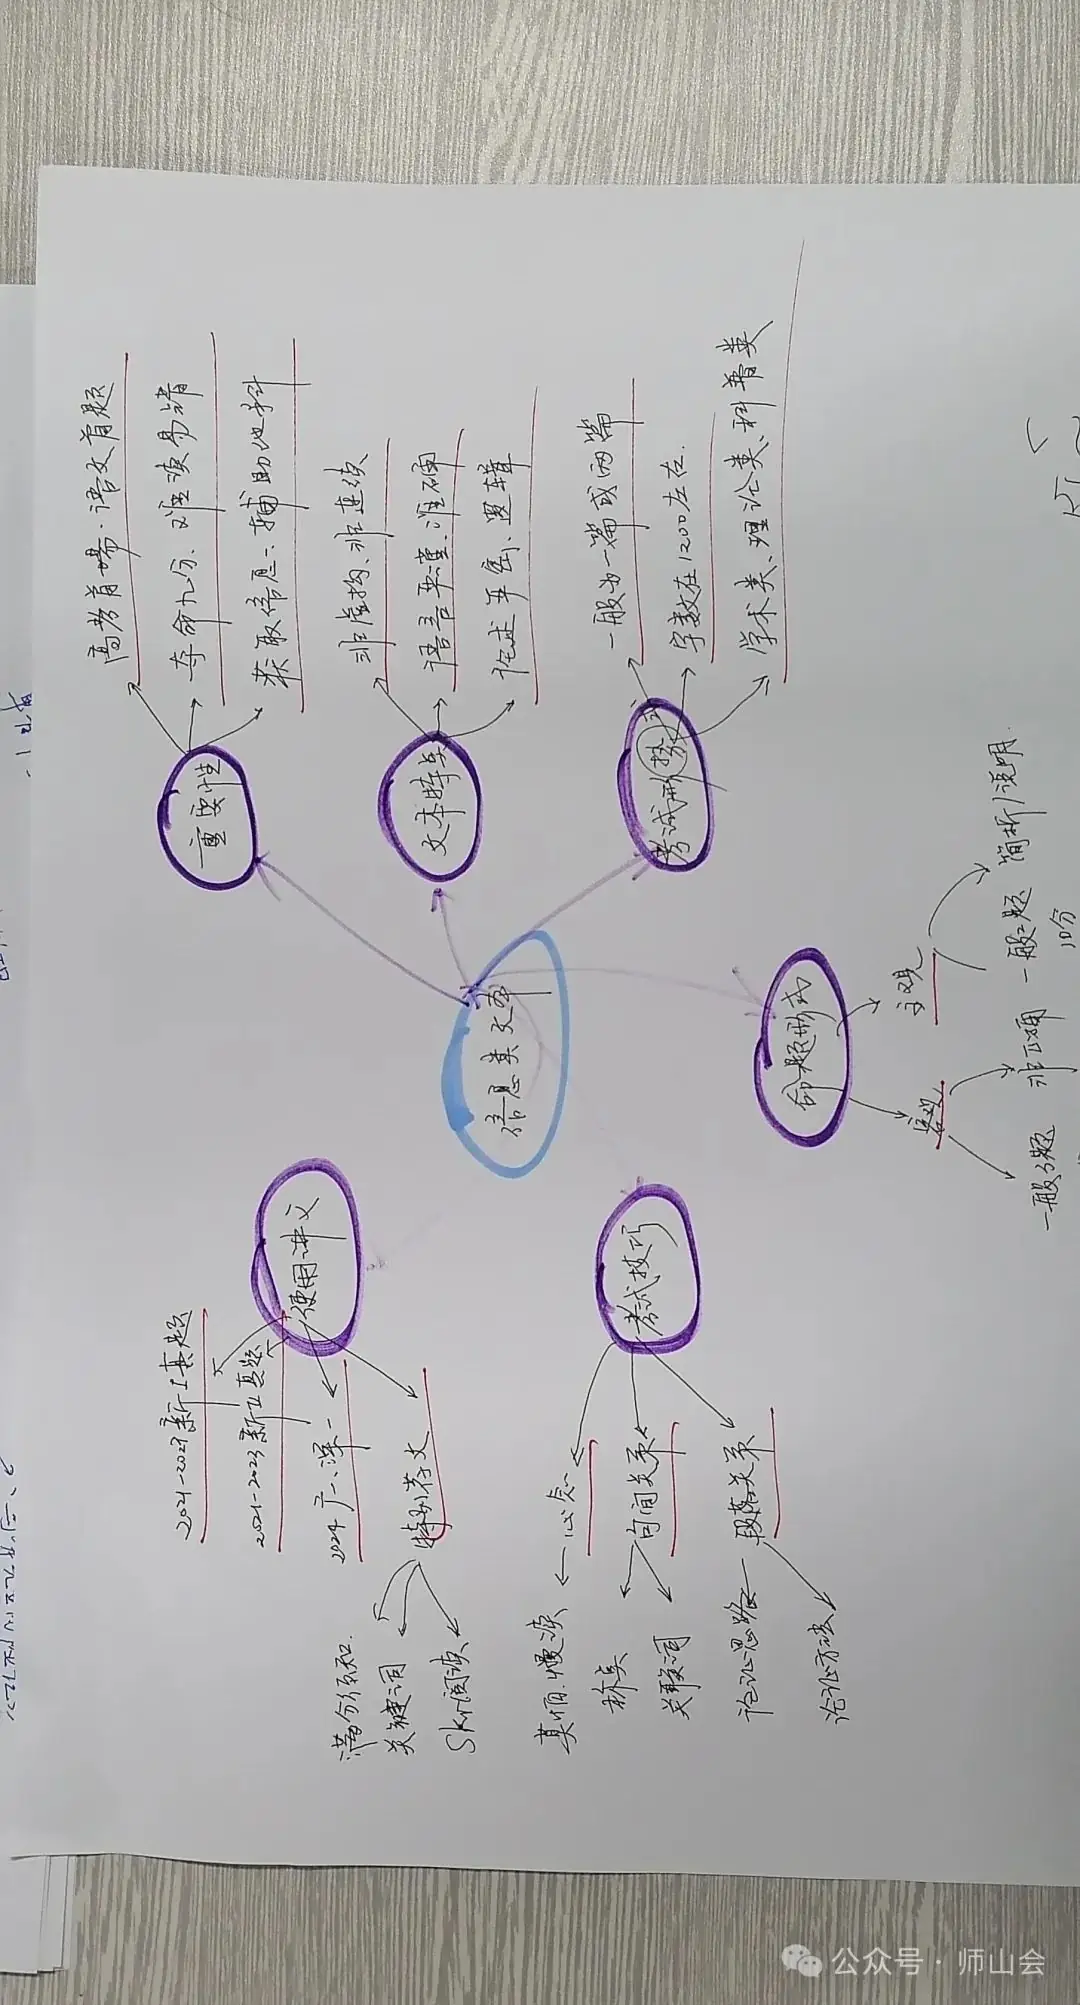 信息类文本
重要性
高考首場·语文首题
夺命九分、难读易错
获取信息、辅助他科
文本特点
非虚构、非连续
语言严谨、准确
论述严密、逻辑
考试形势
一般为一篇或两篇
字数在1200左右.
学术类、理论类、科普类
命题形式
主观
简析/说明.
一般2题
10分
客观
非正确
一般3题
考试技巧
心态
莫怕.慢读
句间关系
标点
关联词
段落关系
论证思路
论证方法
使用讲义
2021-2023新I真题
2021-2023新II真题
2024广一、深一
特别荐文
满分须知.
关键词
阅读
公众号·师山会